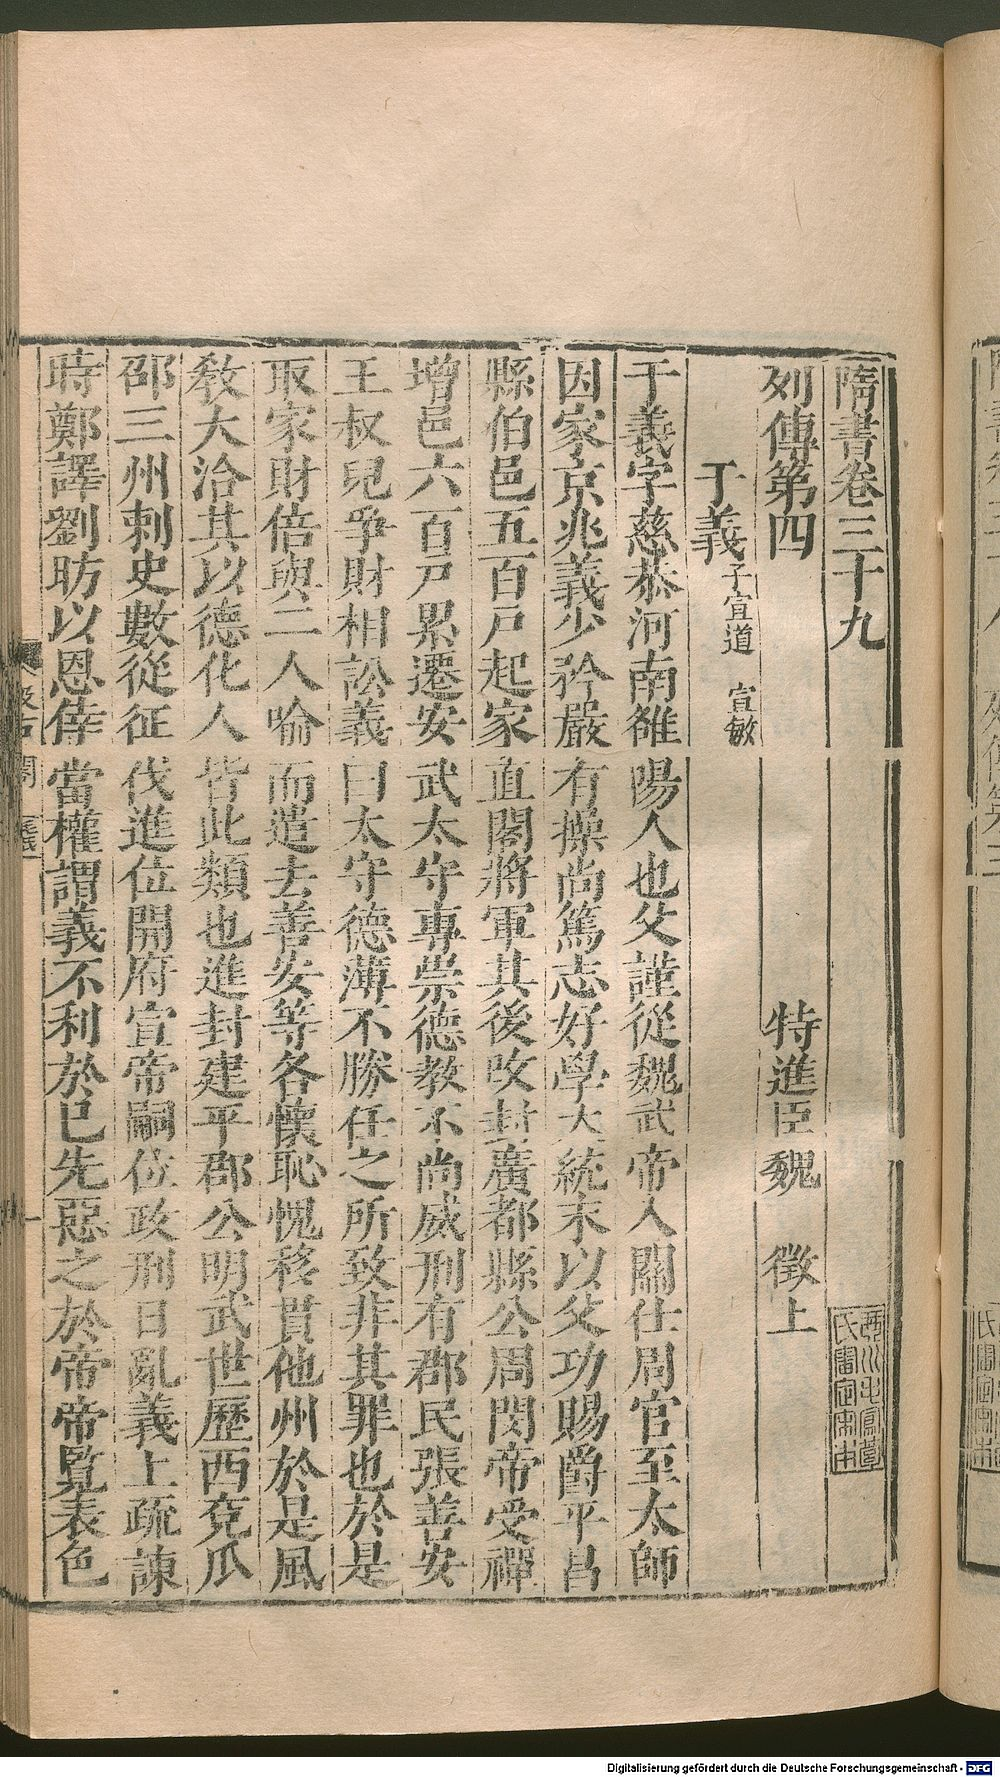 隋書卷三十九
列傳第四 特進臣魏 徵上
于義 子宣道 宣敏
于義字慈恭河南雒陽人也父謹從魏武帝入關仕周官至太師
因家京兆義少矜嚴有操尚篤志好學大統末以父功賜爵平昌
縣伯邑五百戸起家直閣將軍其後改封廣都縣公周閔帝受禪
增邑六百戸累遷安武太守專崇德教不尚威刑有郡民張善安
王叔兒爭財相訟義曰太守德薄不勝任之所致非其罪也於是
取家財倍與二人喻而遣去善安等各懷恥愧移貫他州於是風
教大洽其以德化人皆此類也進封建平郡公明武世歷西兗瓜
邵三州刺史數從征伐進位開府宣帝嗣位政刑日亂義上疏諫
時鄭譯劉昉以恩倖當權謂義不利於已先惡之於帝帝覽表色
汲古閣
西川屯寫堂氏閣定本
Digitalisierung gefördert durch die Deutsche Forschungsgemeinschaft - DFG